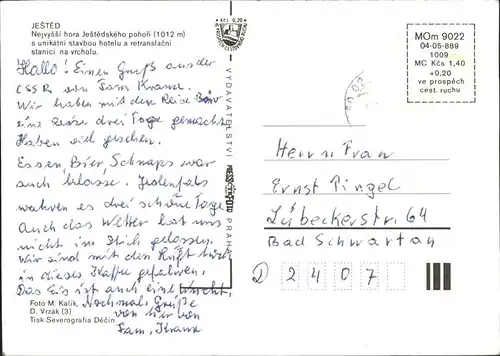 JEŠTĚD
Nejvyšší hora Ještědského pohoří (1012 m)
s unikátní stavbou hotelu a retranslační
stanicí na vrcholu.
Hallo! Einen Gruß aus der
CSSR von Fam Kranz.
Wir haben mit dem Reise Büro
eine Reise drei Tage gemacht
Haben viel gesehen.
Essen, Bier, Schnaps war
auch klasse. Jedenfals
wahren es drei schöne Tage
Auch das Wetter hat uns
nicht im Stich gelassen.
Wir sind mit den
in dieses gefahren.
Das Eis ist auch eine Wucht.
Nochmal Grüße
von hier von
Fam, Kranz
Foto M. Kalík,
D. Vrzák (3)
Tisk Severografia Děčín
VYDAVATELSTVÍ
PRESSFOTO
PRAHA
Kčs 0,20
MOm 9022
04-05-889
1009
MC Kčs 1,40
+0,20
ve prospěch
cest. ruchu
Herrn Frau
Ernst Pingel
Lübeckerstr, 64
Bad Schwartau
D 2407